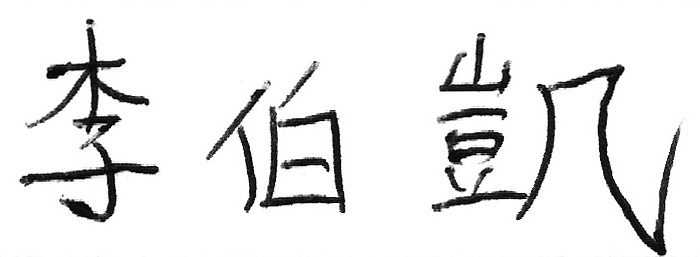 李伯凱